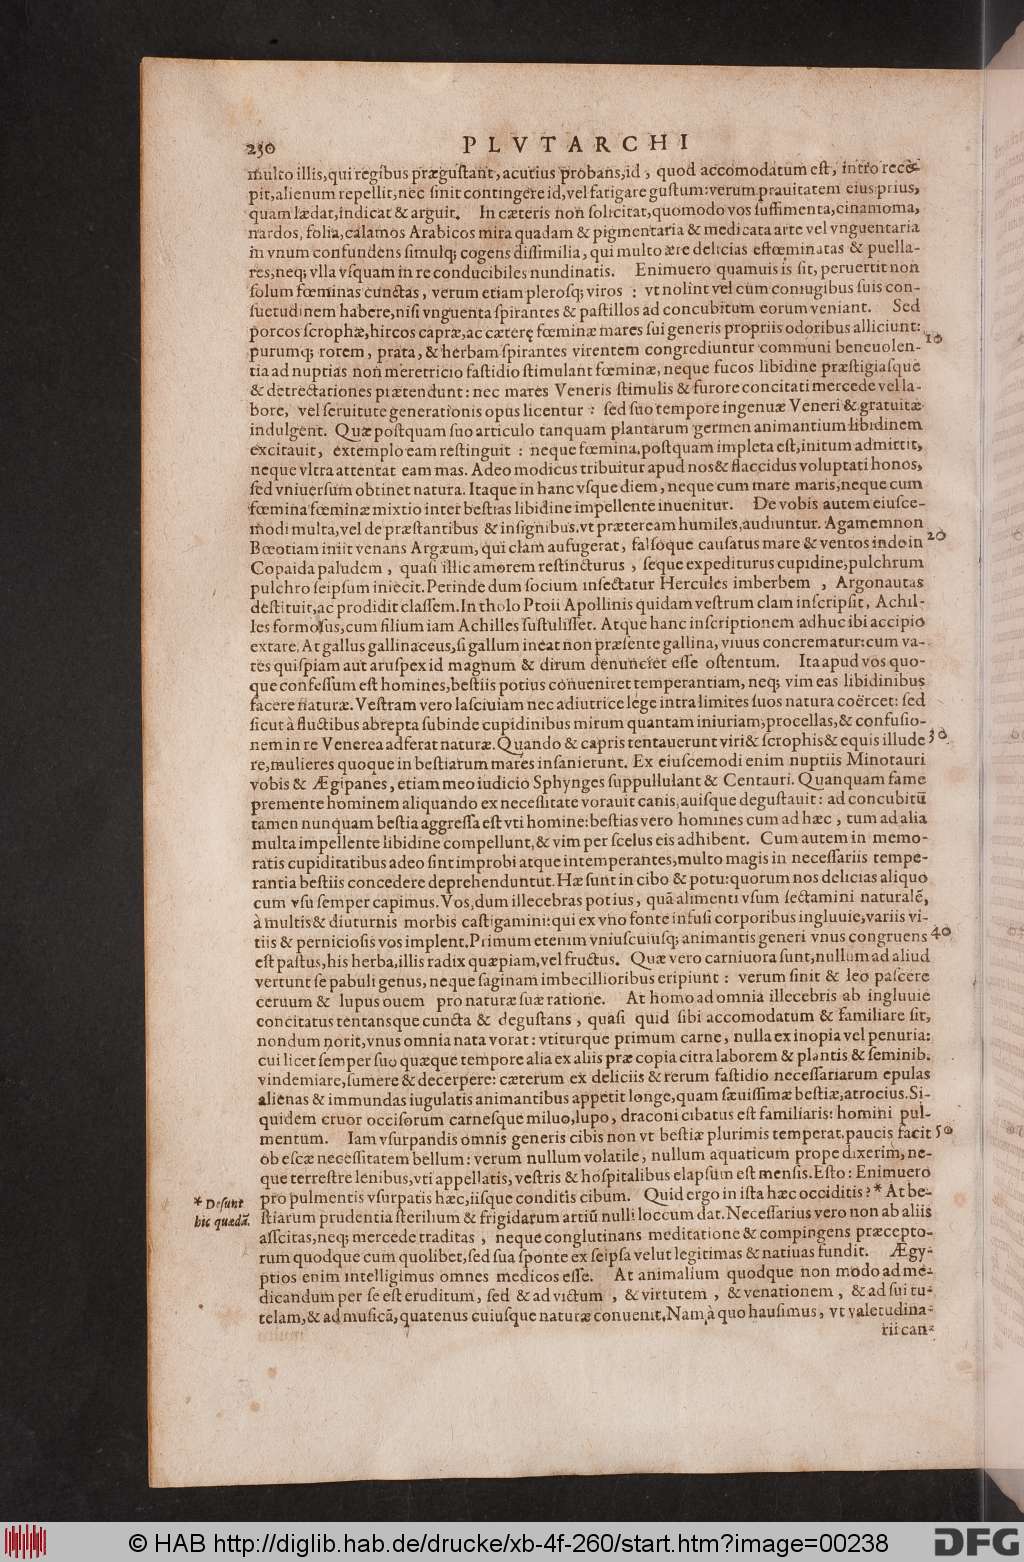 230 PLVTARCHI
multo illis,qui regibus prægustant,acutius probans,id, quod accomodatum est, intro rece-
pit,alienum repellit,nec sinit contingere id,vel fatigare gustum:verum prauitatem eius prius,
quam lædat,indicat & arguit. In cæteris non solicitat,quomodo vos suffimenta,cinamoma,
nardos, folia,calamos Arabicos mira quadam & pigmentaria & medicata arte vel vnguentaria
in vnum confundens simulq; cogens dissimilia, qui multo ære delicias effœminatas & puella-
res,neq; vlla vsquam in re conducibiles nundinatis. Enimuero quamuis is sit, peruertit non
solum fœminas cunctas, verum etiam plerosq; viros : vt nolint vel cum coniugibus suis con-
suetudinem habere,nisi vnguenta spirantes & pastillos ad concubitum eorum veniant. Sed
porcos scrophæ,hircos capræ,ac cæterę fœminæ mares sui generis propriis odoribus alliciunt:
purumq; rorem, prata, & herbam spirantes virentem congrediuntur communi beneuolen- 10
tia ad nuptias non meretricio fastidio stimulant fœminæ, neque fucos libidine præstigiasque
& detrectationes prætendunt: nec mares Veneris stimulis & furore concitati mercede vel la-
bore, vel seruitute generationis opus licentur : sed suo tempore ingenuæ Veneri & gratuitæ
indulgent. Quæ postquam suo articulo tanquam plantarum germen animantium libidinem
excitauit, extemplo eam restinguit : neque fœmina,postquam impleta est,initum admittit,
neque vltra attentat eam mas. Adeo modicus tribuitur apud nos & flaccidus voluptati honos,
sed vniuersum obtinet natura. Itaque in hanc vsque diem, neque cum mare maris,neque cum
fœmina fœminæ mixtio inter bestias libidine impellente inuenitur. De vobis autem eiusce-
modi multa,vel de præstantibus & insignibus,vt præteream humiles,audiuntur. Agamemnon
Bœotiam iniit venans Argæum, qui clam aufugerat, falsoque causatus mare & ventos inde in 20
Copaida paludem, quasi illic amorem restincturus, seque expediturus cupidine,pulchrum
pulchro seipsum iniecit. Perinde dum socium insectatur Hercules imberbem , Argonautas
destituit,ac prodidit classem. In tholo Ptoii Apollinis quidam vestrum clam inscripsit, Achil-
les formosus,cum filium iam Achilles sustulisset. Atque hanc inscriptionem adhuc ibi accipio
extare. At gallus gallinaceus,si gallum ineat non præsente gallina, viuus concrematur:cum va-
tes quispiam aut aruspex id magnum & dirum denunciet esse ostentum. Ita apud vos quo-
que confessum est homines,bestiis potius conueniret temperantiam, neq; vim eas libidinibus
facere naturæ. Vestram vero lasciuiam nec adiutrice lege intra limites suos natura coërcet: sed
sicut à fluctibus abrepta subinde cupidinibus mirum quantam iniuriam,procellas,& confusio-
nem in re Venerea adferat naturæ. Quando & capris tentauerunt viri & scrophis & equis illude- 30
re,mulieres quoque in bestiarum mares insanierunt. Ex eiuscemodi enim nuptiis Minotauri
vobis & Ægipanes, etiam meo iudicio Sphynges suppullulant & Centauri. Quanquam fame
premente hominem aliquando ex necessitate vorauit canis,auisque degustauit: ad concubitū
tamen nunquam bestia aggressa est vti homine:bestias vero homines cum ad hæc, tum ad alia
multa impellente libidine compellunt,& vim per scelus eis adhibent. Cum autem in memo-
ratis cupiditatibus adeo sint improbi atque intemperantes,multo magis in necessariis tempe-
rantia bestiis concedere deprehenduntur. Hæ sunt in cibo & potu:quorum nos delicias aliquo
cum vsu semper capimus. Vos,dum illecebras potius, quā alimenti vsum sectamini naturalē,
à multis & diuturnis morbis castigamini:qui ex vno fonte infusi corporibus ingluuie,variis vi-
tiis & perniciosis vos implent. Primum etenim vniuscuiusq; animantis generi vnus congruens 40
est pastus,his herba,illis radix quæpiam,vel fructus. Quæ vero carniuora sunt,nullum ad aliud
vertunt se pabuli genus, neque saginam imbecillioribus eripiunt : verum sinit & leo pascere
ceruum & lupus ouem pro naturæ suæ ratione. At homo ad omnia illecebris ab ingluuie
concitatus tentansque cuncta & degustans, quasi quid sibi accomodatum & familiare sit,
nondum norit,vnus omnia nata vorat: vtiturque primum carne, nulla ex inopia vel penuria:
cui licet semper suo quæque tempore alia ex aliis præ copia citra laborem & plantis & seminib.
vindemiare,sumere & decerpere: cæterum ex deliciis & rerum fastidio necessariarum epulas
alienas & immundas iugulatis animantibus appetit longe,quam sæuissimæ bestiæ,atrocius. Si-
quidem cruor occisorum carnesque miluo,lupo, draconi cibatus est familiaris: homini pul-
mentum. Iam vsurpandis omnis generis cibis non vt bestiæ plurimis temperat,paucis facit 50
ob escæ necessitatem bellum: verum nullum volatile, nullum aquaticum prope dixerim, ne-
que terrestre lenibus,vti appellatis, vestris & hospitalibus elapsum est mensis. Esto: Enimuero
pro pulmentis vsurpatis hæc,iisque conditis cibum. Quid ergo in ista hæc occiditis? * At be-
* Desunt
hic quædā.
stiarum prudentia sterilium & frigidarum artiū nulli loccum dat. Necessarius vero non ab aliis
asscitas,neq; mercede traditas, neque conglutinans meditatione & compingens præcepto-
rum quodque cum quolibet,sed sua sponte ex seipsa velut legitimas & natiuas fundit. Ægy-
ptios enim intelligimus omnes medicos esse. At animalium quodque non modo ad me-
dicandum per se est eruditum, sed & ad victum , & virtutem , & venationem , & ad sui tu-
telam,& ad musicā, quatenus cuiusque naturæ conuenit. Nam à quo hausimus, vt valetudina-
rii can-
© HAB http://diglib.hab.de/drucke/xb-4f-260/start.htm?image=00238
DFG